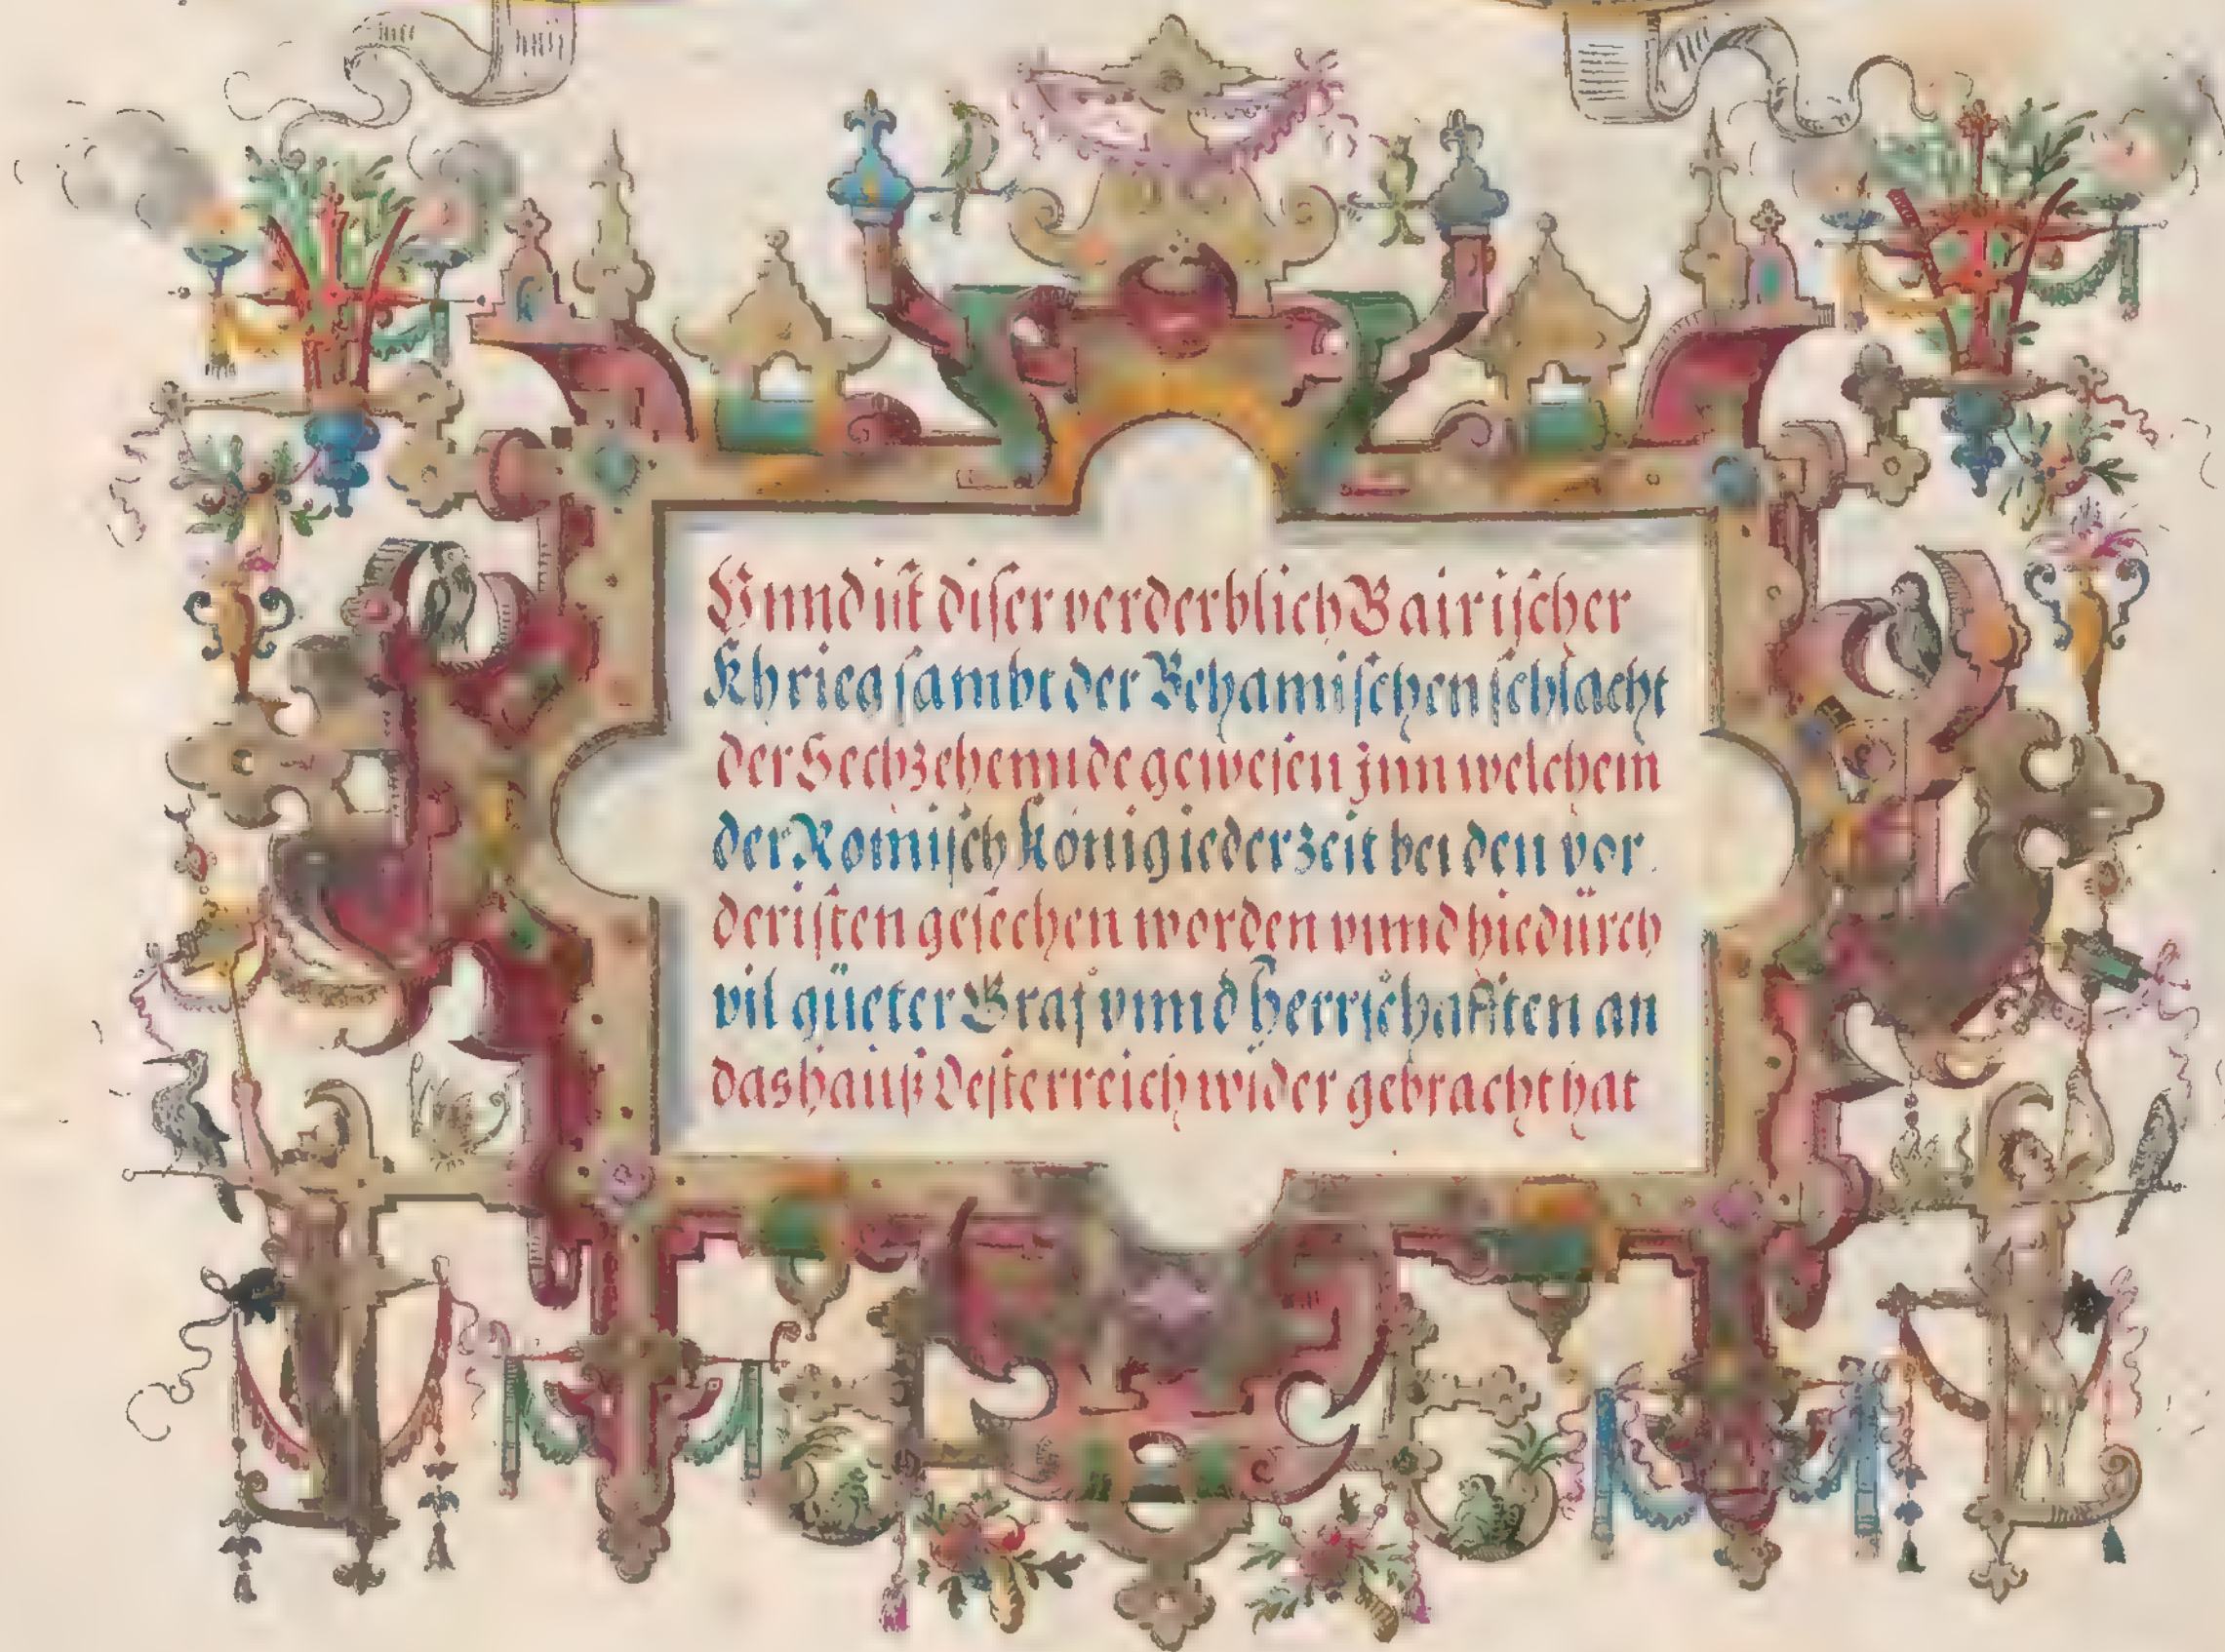 Vnnd ist diser verderblich Bairischer
Khrieg sambt der Behamischen schlacht
der Sechzehennde gewesen jnn welchem
der Romisch konig iederzeit bei den vor
deristen gesechen worden vnnd hiedürch
vil güeter Graf vnnd herrschafften an
das hauß Oesterreich wider gebracht hat